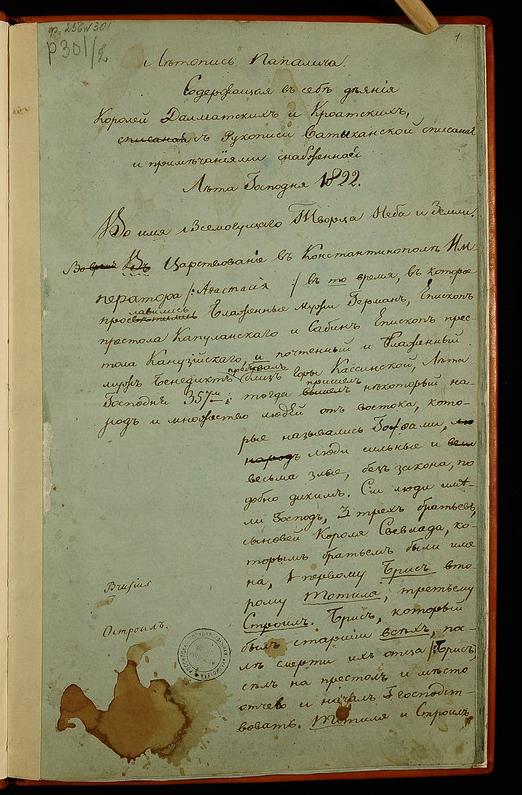 р301/2
1
Лѣтопись Папалича.
Содержащая въ себѣ дѣянія
Королей Далматскихъ и Кроатскихъ,
списаная съ Рукописи Ватыканской списаная
и примѣчаніями снабженная
Лѣта Господня 1822.
Во имя Всемогущаго Творца Неба и Земли.
Въ Царствованіе въ Константинополѣ Им-
ператора /: Анастасія :/ въ то время, въ которое
прославились Блаженные мужи Герман, Епископъ
престола Капуланскаго и Сабинъ Епископъ прес-
тола Канузійскаго, и почтенный и блаженный
мужъ Бенедиктъ близъ горы Кассинской, Лѣта
пребывалъ
Господня 357го; тогда пришелъ нѣкоторый на-
родъ и множество людей отъ востока, кото-
рые назывались Готфами,
народъ люди сильные и
весьма злые, безъ закона, по
добно дикимъ. Сіи люди имѣ-
ли Господъ, 3 трехъ братьевъ,
сыновей Короля Свевлада, ко-
торымъ братьемъ были име
на, первому Брисъ вто
рому Тотила, третьему
Строилъ. Брисъ, который
былъ старшіи всѣхъ, по-
слѣ смерти ихъ отца /Брисъ/
сѣлъ на престолъ и мѣсто
отчево и началъ Господст-
вовать. Тотила и Строилъ
Остроилъ.